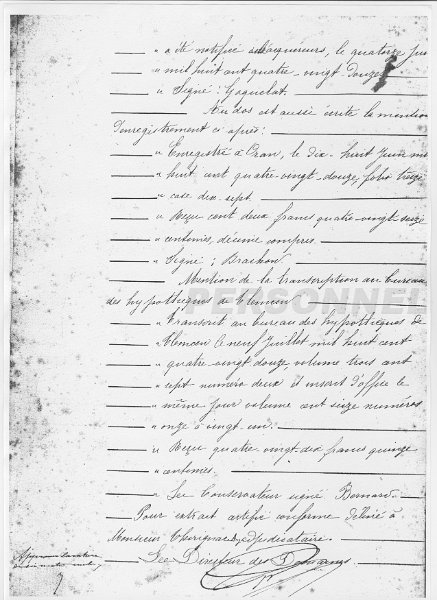 " a été notifié acquéreurs, le quatorze Juin
" mil huit cent quatre-vingt douze
" Signé : Gaquelat.
Au dos est aussi écrite la mention
d'enregistrement ci après :
" Enregistré à Oran, le dix-huit Juin mil
" huit cent quatre-vingt-douze, folio treize
" case dix-sept
" Reçu cent deux francs quatre-vingt-seize
" centimes, décime compris.
" Signé :
Mention de la transcription au bureau
des hypothèques de Tlemcen
PERSONNEL
" Transcrit au bureau des hypothèques de
" Tlemcen le neuf Juillet mil huit cent
" quatre-vingt douze, volume trois cent
" sept numéro deux et inscrit d'office le
" même jour volume cent seize numéros
" onze à vingt un :
" Reçu quatre-vingt-dix francs quinze
" centimes.
" Le Conservateur signé Bernard.
Pour extrait certifié conforme délivré à
Monsieur
Le Directeur des Domaines